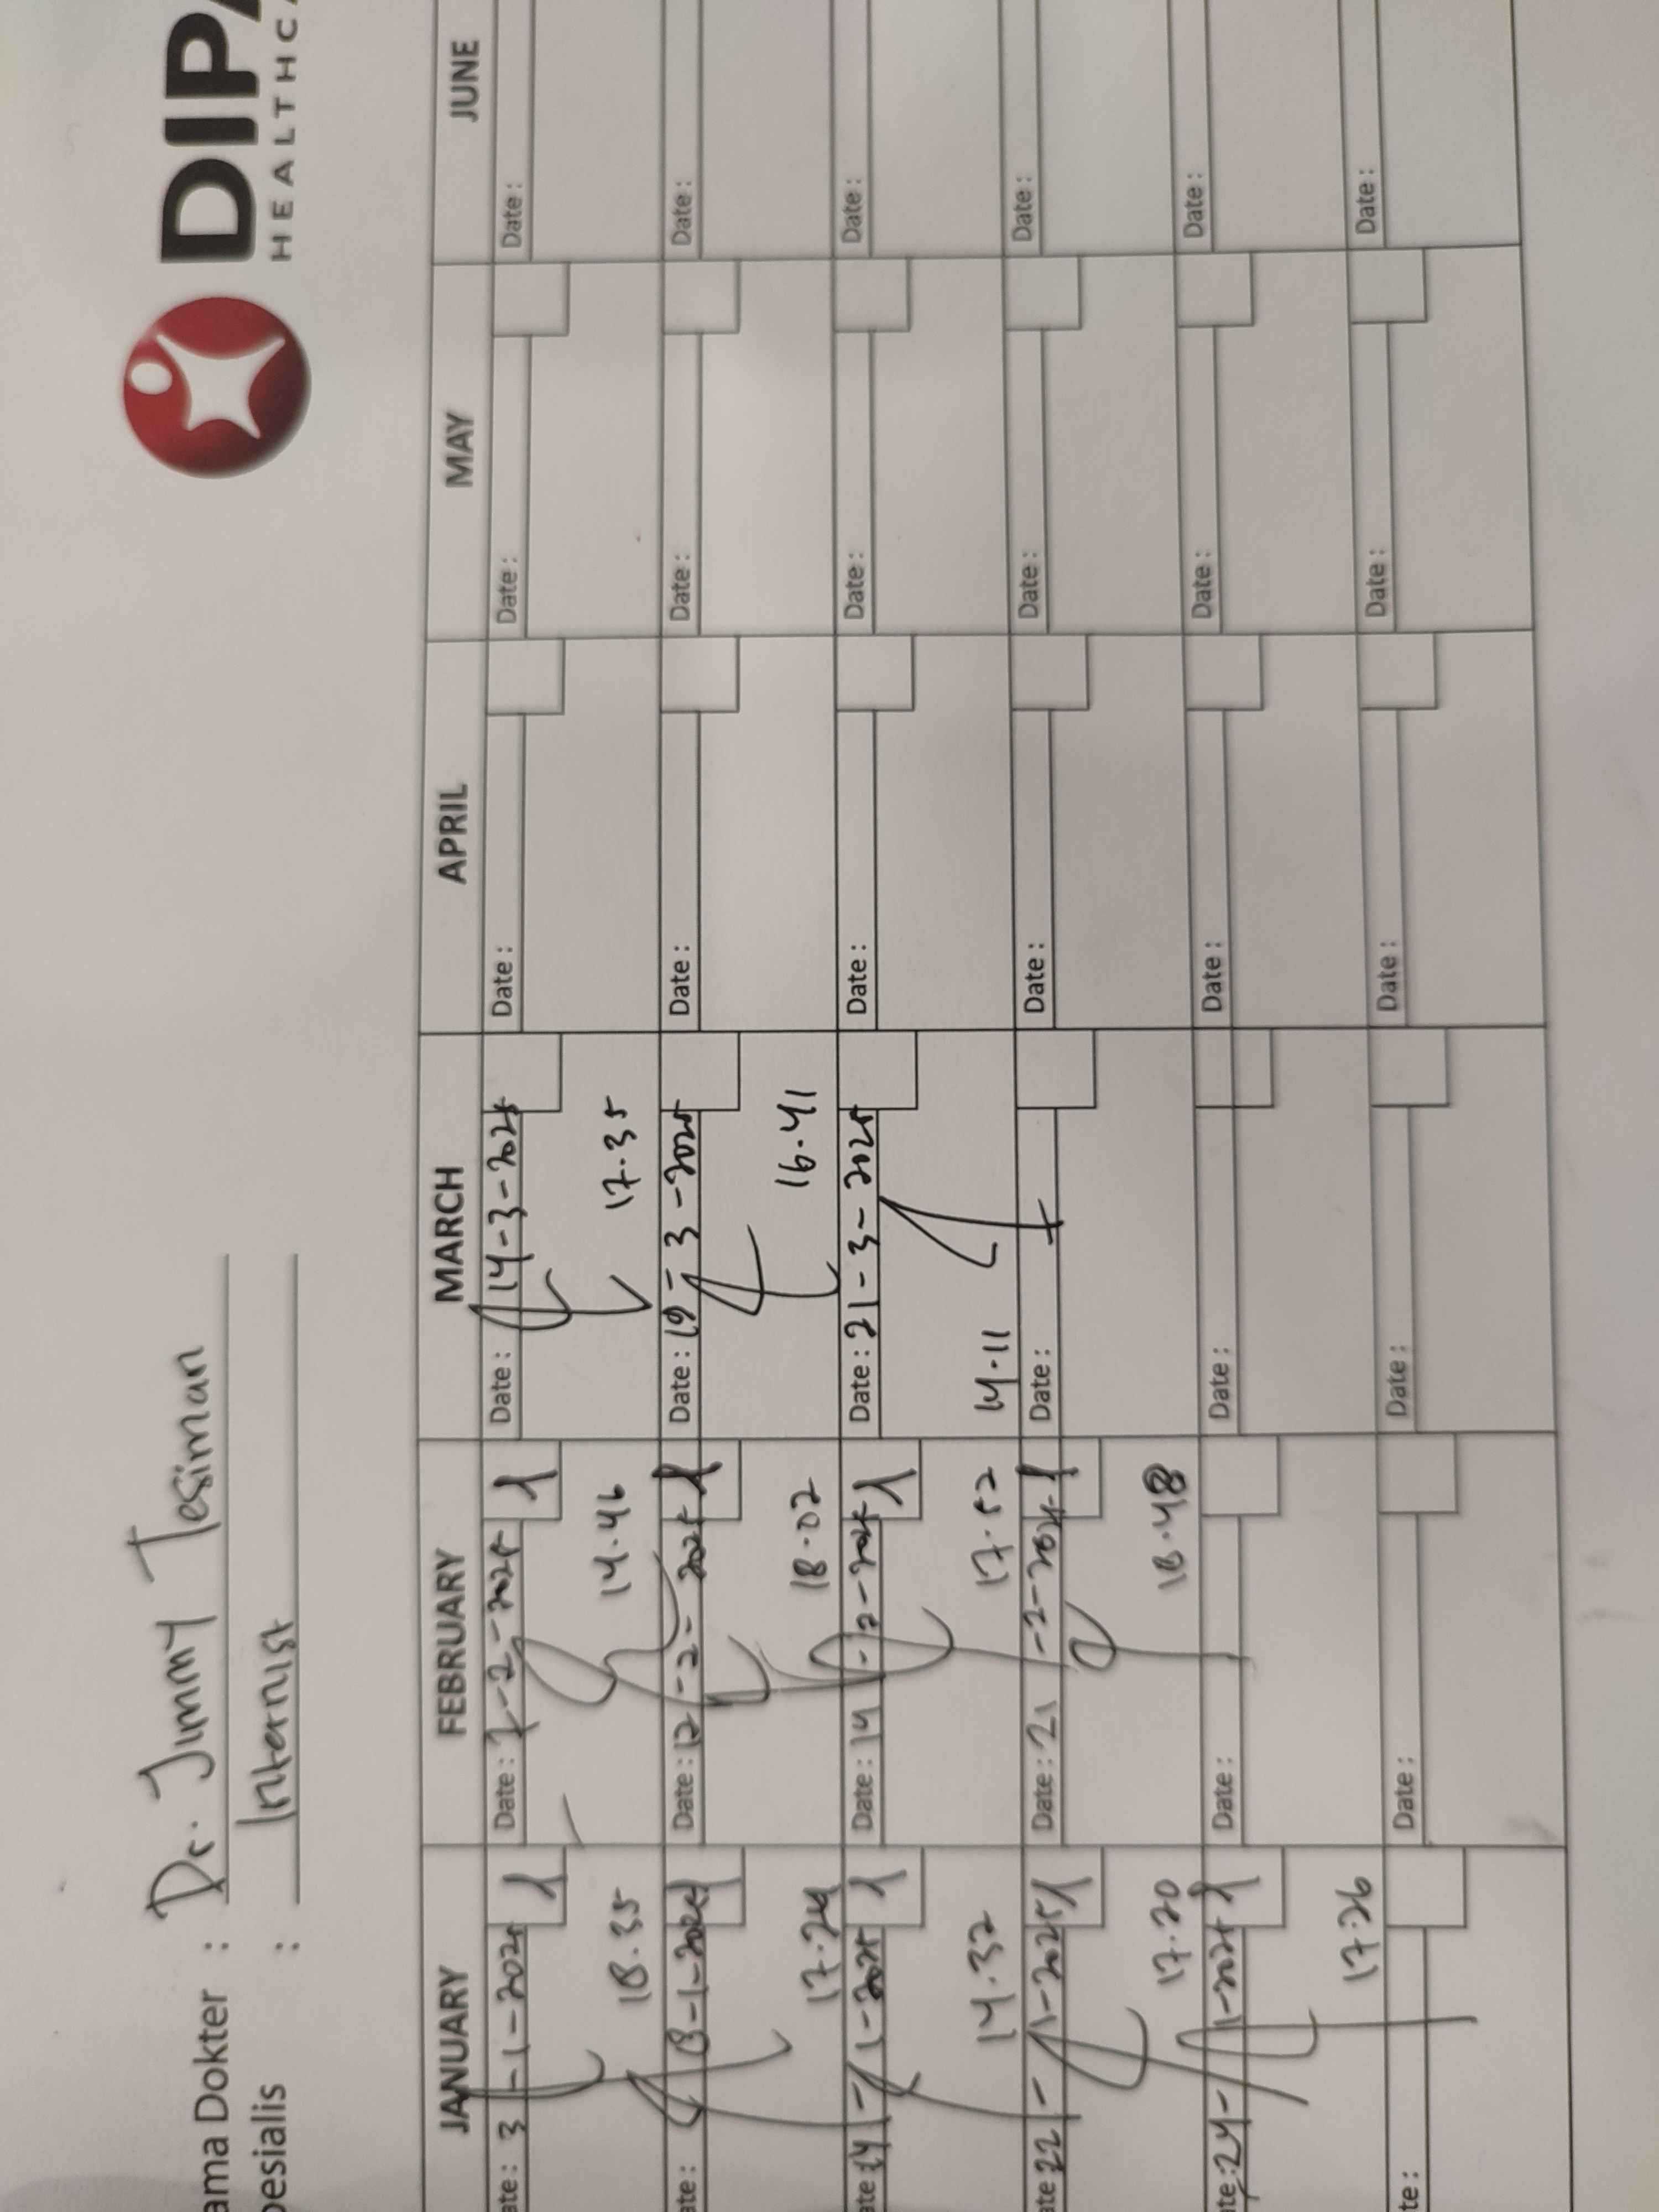 DIPA
HEALTHCA
ama Dokter : Dr. Jimmy Tesiman
pesialis : Internist
JANUARY FEBRUARY MARCH APRIL MAY JUNE
ate: 3-1-2025 1 Date: 7-2-2025 1 Date: 14-3-2025 Date: Date: Date:
18.35 14.46 17.35
ate: 8-1-2025 1 Date: 12-2-2025 1 Date: 19-3-2025 Date: Date: Date:
17.24 18.02 16.41
ate 14-1-2025 1 Date: 14-2-2025 1 Date: 21-3-2025 Date: Date: Date:
14.32 17.52 14.11
ate 22-1-2025 1 Date: 21-2-2025 1 Date: Date: Date: Date:
17.20 18.48
te: 24-1-2025 1 Date: Date: Date: Date: Date:
17.26
te: Date: Date: Date: Date: Date: